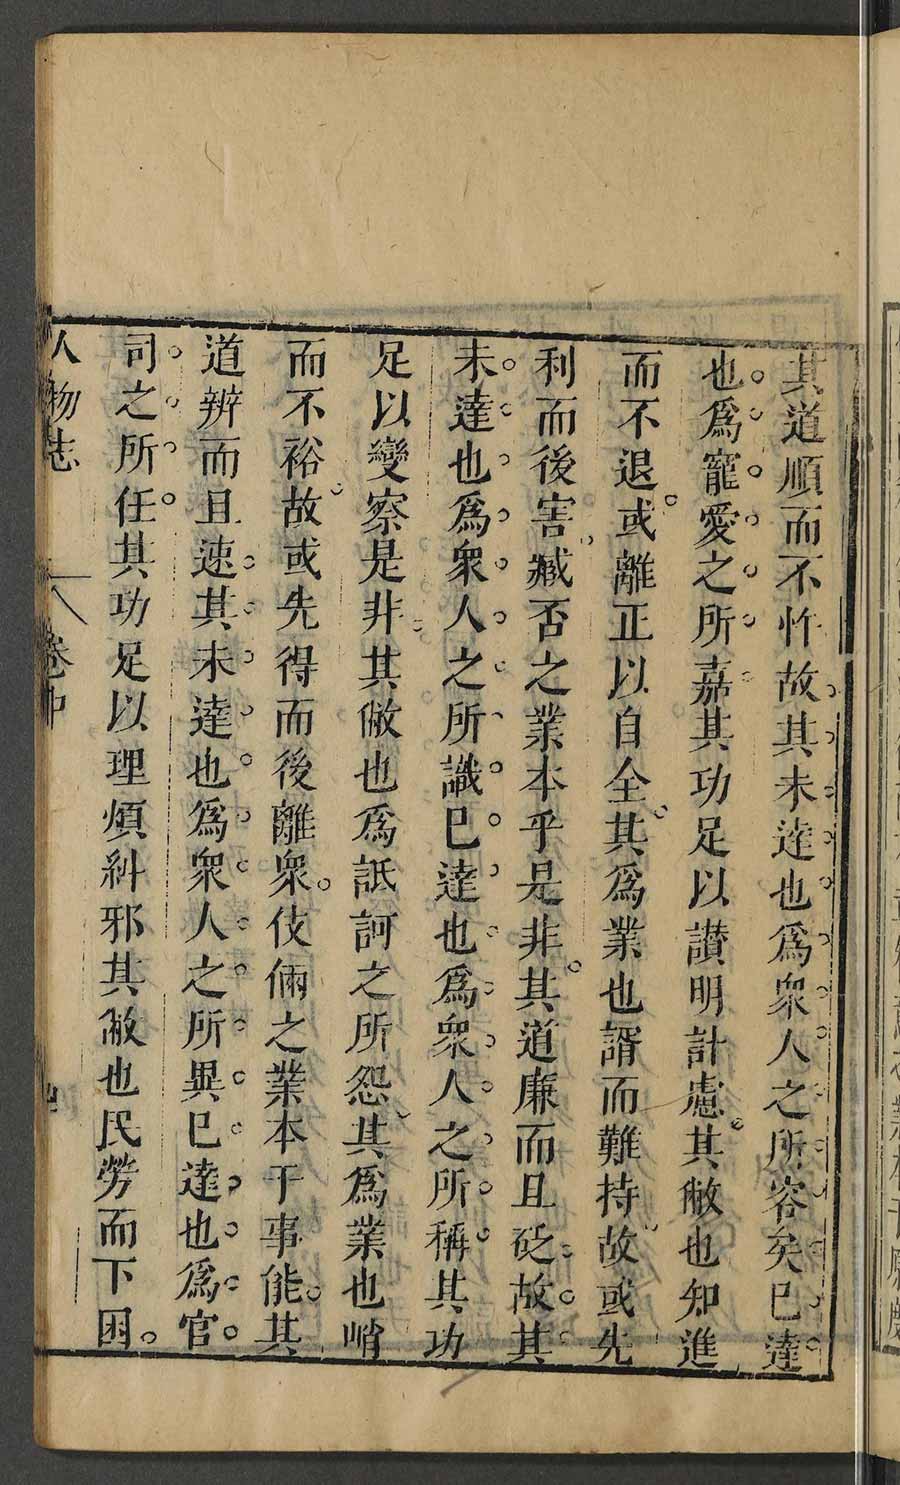 其道順而不忤故其未達也爲衆人之所容矣已達
也爲寵愛之所嘉其功足以讃明計慮其敝也知進
而不退或離正以自全其爲業也諝而難持故或先
利而後害臧否之業本乎是非其道廉而且砭故其
未達也爲衆人之所識已達也爲衆人之所稱其功
足以變察是非其敝也爲詆訶之所怨其爲業也峭
而不裕故或先得而後離衆伎倆之業本于事能其
道辨而且速其未達也爲衆人之所異已達也爲官
司之所任其功足以理煩糾邪其敝也民勞而下困
人物志 卷中